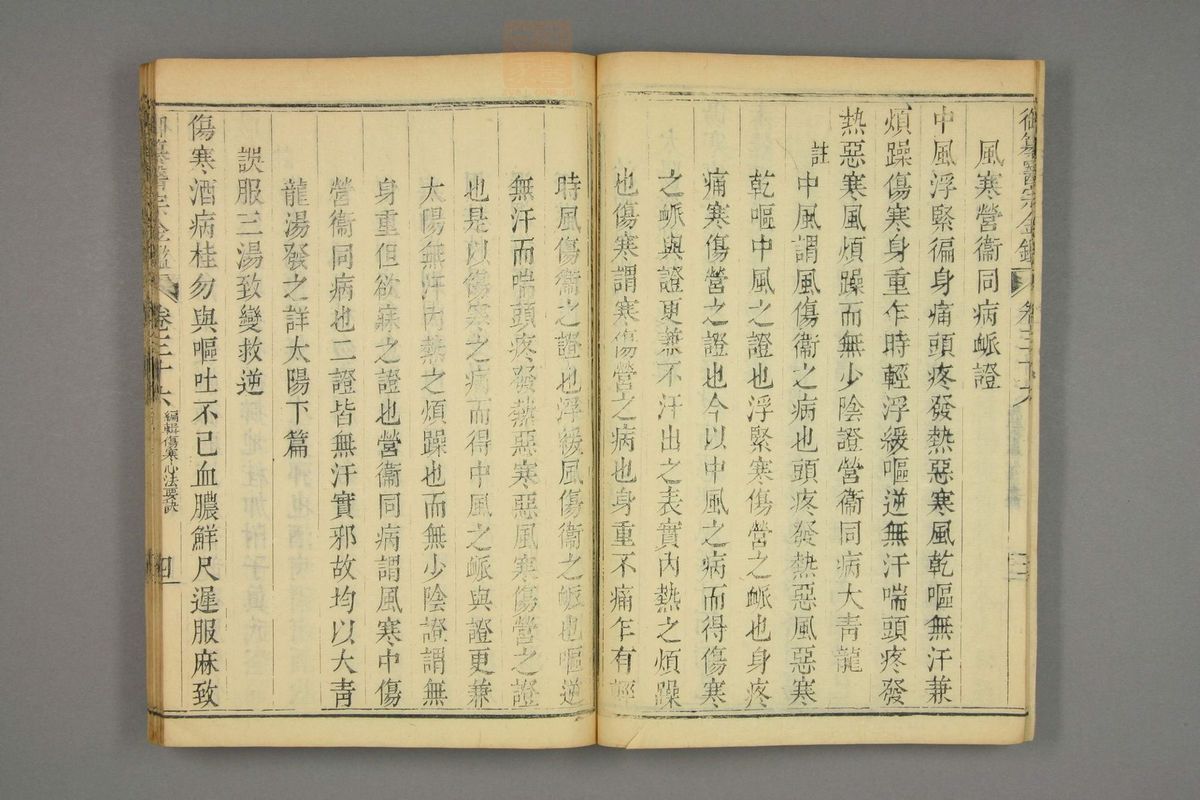 御纂醫宗金鑑 卷三十六
風寒營衞同病脈證
中風浮緊徧身痛頭疼發熱惡寒風乾嘔無汗兼
煩躁傷寒身重乍時輕浮緩嘔逆無汗喘頭疼發
熱惡寒風煩躁而無少陰證營衞同病大青龍
註中風謂風傷衞之病也頭疼發熱惡風惡寒
乾嘔中風之證也浮緊寒傷營之脈也身疼
痛寒傷營之證也今以中風之病而得傷寒
之脈與證更兼不汗出之表實內熱之煩躁
也傷寒謂寒傷營之病也身重不痛乍有輕
時風傷衞之證也浮緩風傷衞之脈也嘔逆
無汗而喘頭疼發熱惡寒惡風寒傷營之證
也是以傷寒之病而得中風之脈與證更兼
太陽無汗內熱之煩躁也而無少陰證謂無
身重但欲寐之證也營衞同病謂風寒中傷
營衞同病也二證皆無汗實邪故均以大青
龍湯發之詳太陽下篇
誤服三湯致變救逆
傷寒酒病桂勿與嘔吐不已血膿鮮尺遲服麻致
御纂醫宗金鑑 卷三十六 編輯傷寒心法要訣 四